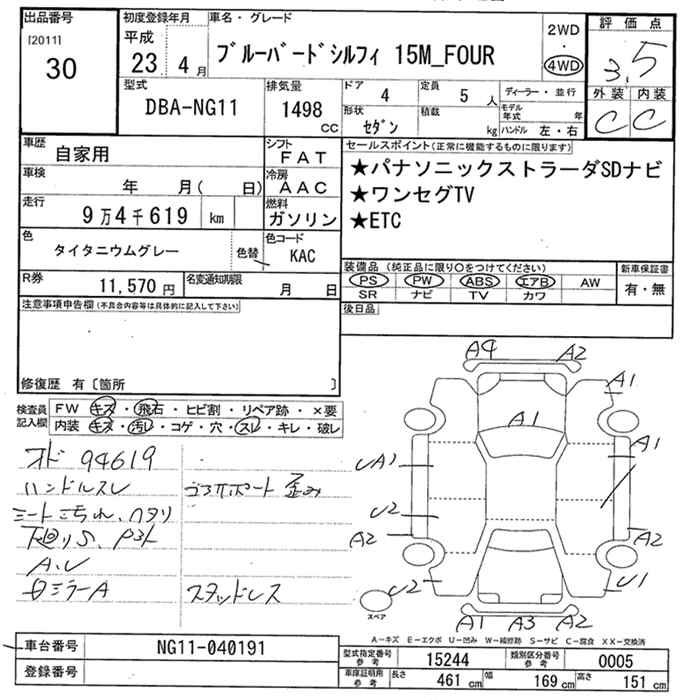 出品番号 初度登録年月 車名・グレード 2WD・4WD 評価点
[2011] 30 平成 23.4月 ブルーバードシルフィ 15M_FOUR 3.5
型式 DBA-NG11 排気量 1498 cc ドア 4 定員 5 人 ディーラー・並行 外装 内装
形状 セダン 積載 kg モデル年式 年 ハンドル 左・右 C C
車歴 自家用 シフト FAT セールスポイント(正常に機能するものに限ります)
車検 年 月( 日) 冷房 AAC ★パナソニックストラーダSDナビ
走行 9万4千619 km 燃料 ガソリン ★ワンセグTV
★ETC
色 タイタニウムグレー 色替 色コード KAC
R券 11,570円 名変通知期限 月 日
装備品 (純正品に限り○をつけてください) 新車保証書
PS PW ABS エアB AW 有・無
SR ナビ TV カワ
注意事項申告欄(不具合内容等は具体的に記入して下さい) 後日品
修復歴 有〔箇所 〕
検査員記入欄 FW キズ・飛石・ヒビ割・リペア跡・×要
内装 キズ・汚レ・コゲ・穴・スレ・キレ・破レ
オド 94619
ハンドルスレ
シートこちれ、ヘタリ
下廻りS
スタッドレス
A4 A2
A1
A1
A1
UA1
U2
A2 A2
U2 U1
A1 A3 A2
スペア
A-キズ E-エクボ U-凹み W-補修跡 S-サビ C-腐食 XX-交換済
車台番号 NG11-040191
登録番号
型式指定番号 参考 15244 類別区分番号 参考 0005
車庫証明用 参考 長さ 461 cm 幅 169 cm 高さ 151 cm